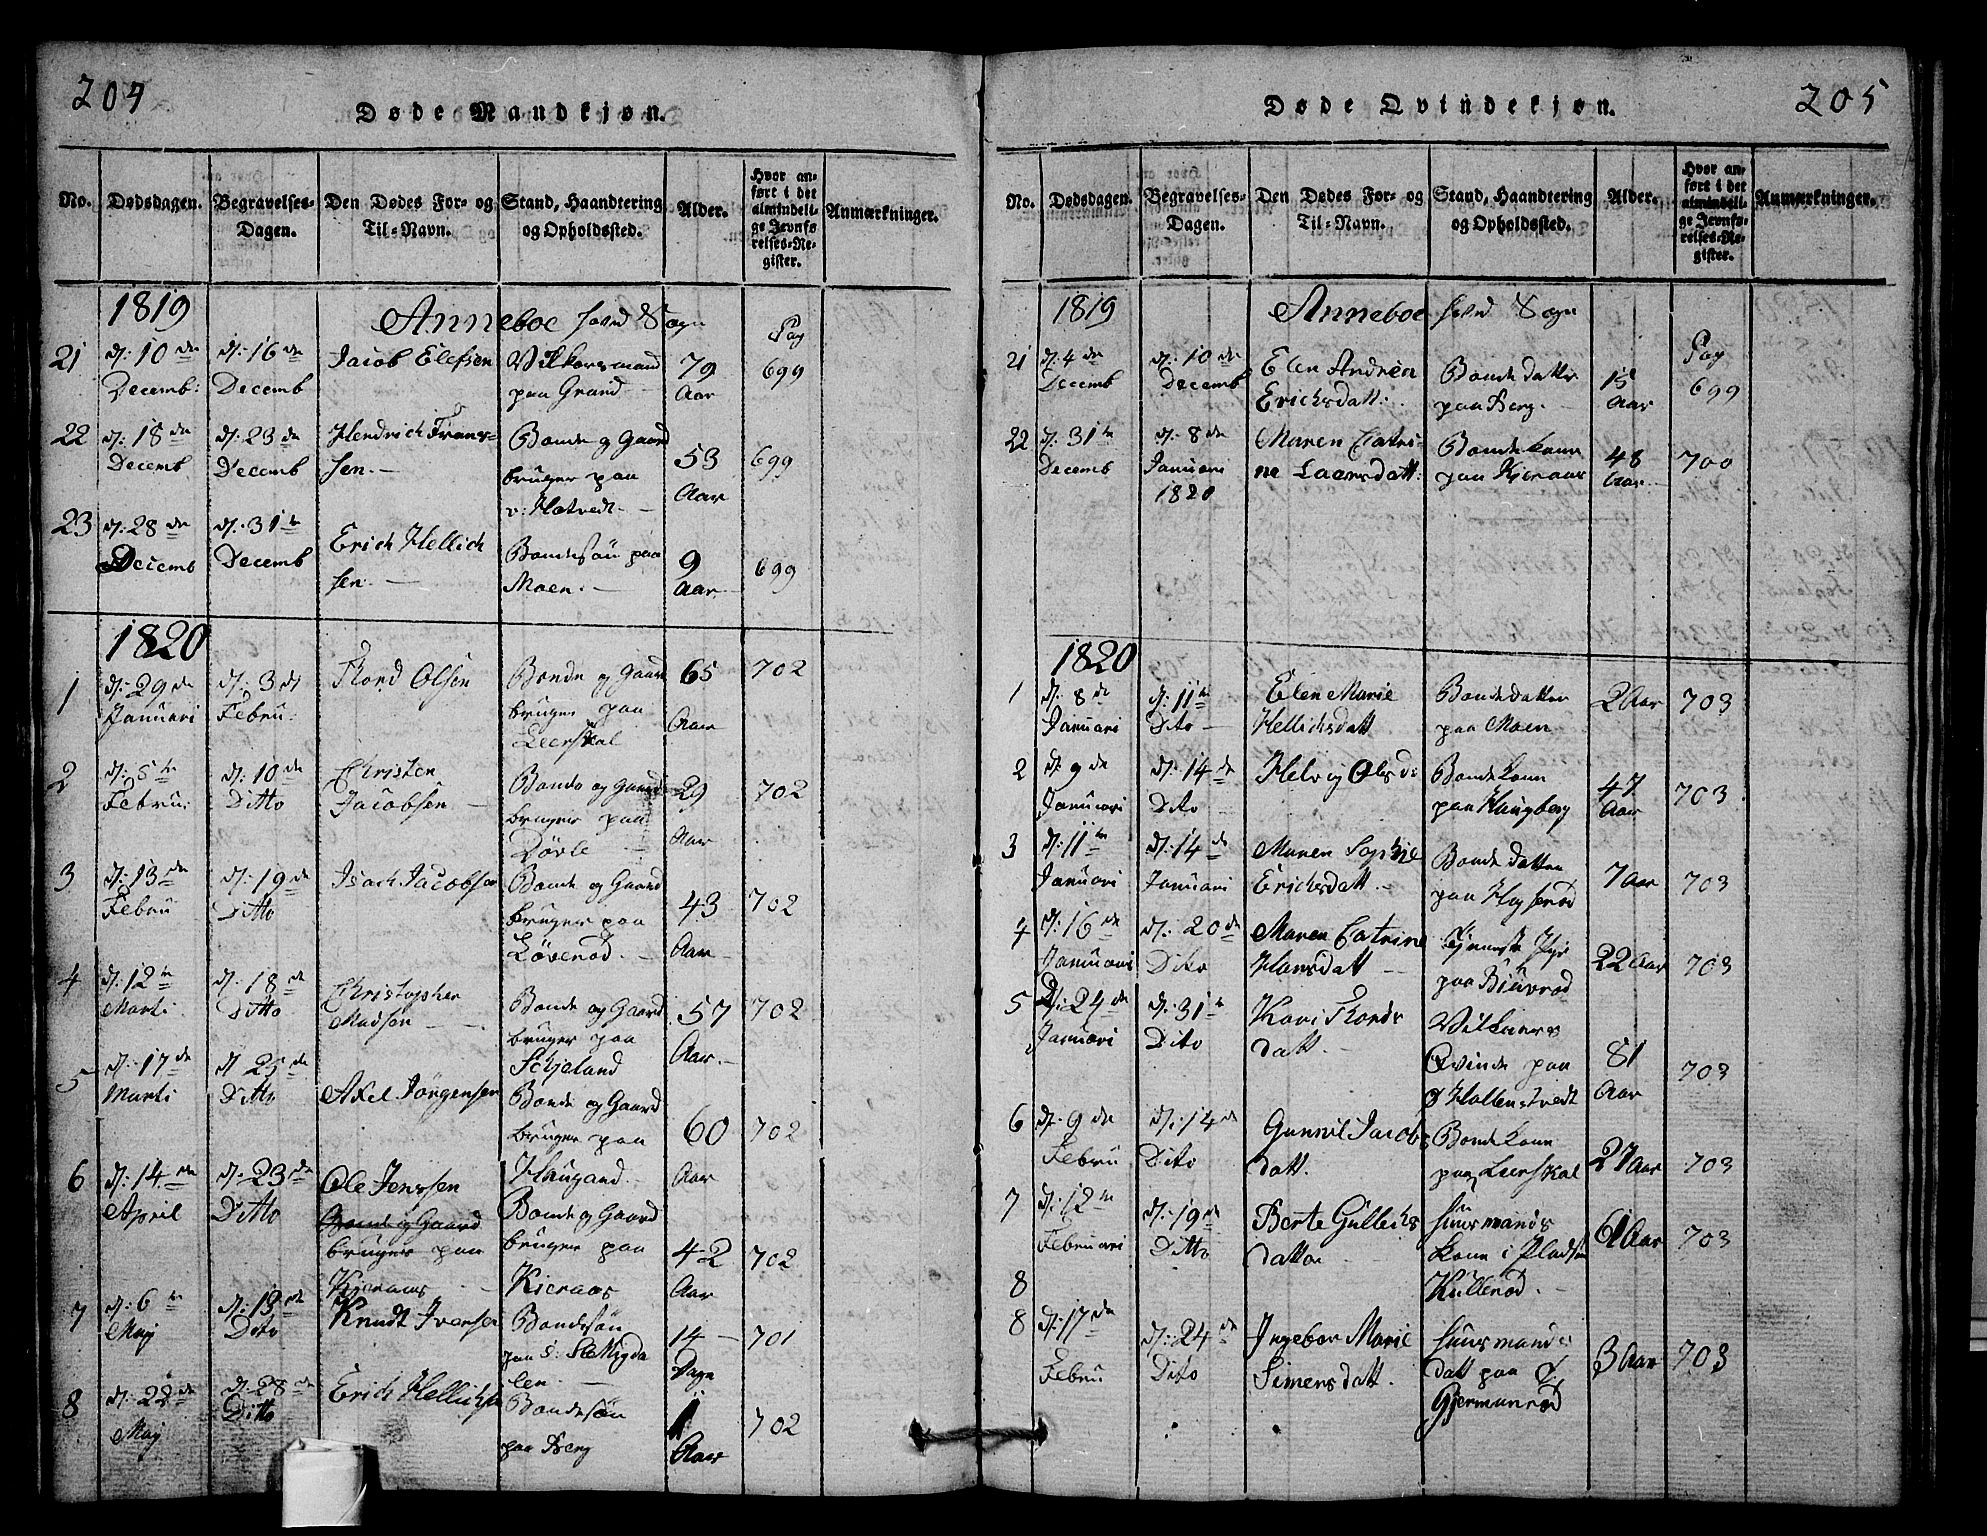 204
Døde Mandkjøn.
No. Dødsdagen. Begravelses-Dagen. Den Dødes For- og Til-Navn. Stand, Haandtering og Opholdssted. Alder. Hvor anført i det almindelige Jevnførelses-Register. Anmærkninger.
1819 Anneboe hoved Sogn Pag
21 d: 10de Decemb: d: 16de Decemb Jacob Elefsen Vilkorsmand paa Grand 79 Aar 699
22 d: 18de Decemb d: 23de Decemb Hendrich Fransen Bonde og Gaard bruger paa v: Hotvedt 53 Aar 699
23 d: 28de Decemb d: 31te Decemb Erich Hellichsen Bondesøn paa Moen 9 Aar 699
1820
1 d: 29de Januari d: 3de Febru: Thord Olsen Bonde og Gaard bruger paa Leerskal 65 Aar 702
2 d: 5te Febru: d: 10de Ditto Christen Jacobsen Bonde og Gaard bruger paa Døvle 29 Aar 702
3 d: 13de Febru d: 19de Ditto Isach Jacobsen Bonde og Gaard bruger paa Løvenod 43 Aar 702
4 d: 12te Marti d: 18de Ditto Christopher Madsen Bonde og Gaard bruger paa Schjeland 57 Aar 702
5 d: 17de Marti d 25de Ditto Axel Jørgensen Bonde og Gaard bruger paa Haugand 60 Aar 702
6 d: 14de April d: 23de Ditto Ole Jenssen Bonde og Gaard bruger paa Kieraas Bonde og Gaard bruger paa Kieraas 42 Aar 702
7 d: 6te Maj d: 13de Dito Knudt Iversen Bondesøn paa S: Migdalen 14 Dage 701
8 d: 22de Maj d: 28de Ditto Erich Hellichsen Bondesøn paa Berg 1 Aar 702
205
Døde Qvindekjøn.
No. Dødsdagen. Begravelses-Dagen. Den Dødes For- og Til-Navn. Stand, Haandtering og Opholdssted. Alder. Hvor anført i det almindelige Jevnførelses-Register. Anmærkninger.
1819 Anneboe hoved Sogn Pag
21 d: 4de Decemb d: 10de Decemb Elen Andrea Erichsdatt: Bonde datter paa Berg 15 Aar 699
22 d: 31te Decemb d: 8de Januari 1820 Maren Catrine Laarsdatt: Bondekone paa Kieraas 48 Aar 700
1820
1 d: 8de Januari d: 11te Dito Elen Marie Hellichsdatt Bondedatter paa Moen 2 Aar 703
2 d: 9de Januari d: 14de Dito Helvig Olsd Bondekone paa Haugberg 47 Aar 703
3 d: 11te Januari d: 14de Januari Maren Sophie Erichsdatt Bonde datter paa Høyserød 7 Aar 703
4 d: 16de Januari d: 20de Dito Maren Catrine Hansdatt Tjeneste Pige paa Biuerød 22 Aar 703
5 d: 24de Januari d: 31te Dito Kari Thords datt Vilkaars Qvinde paa Ø Hallenstvedt 81 Aar 703
6 d: 9de Febru d: 14de Dito Gunnil Jacobs datt. Bondekone paa Leerskal 27 Aar 703
7 d: 12te Februari d: 19de Ditto Berte Gullichs datter Huusmands Kone i Pladsen Kullerød 61 Aar 703
8
8 d: 17de Febru d: 24de Dito Ingebor Marie Simensdatt. Huusmands datt paa Gjermunrød 3 Aar 703